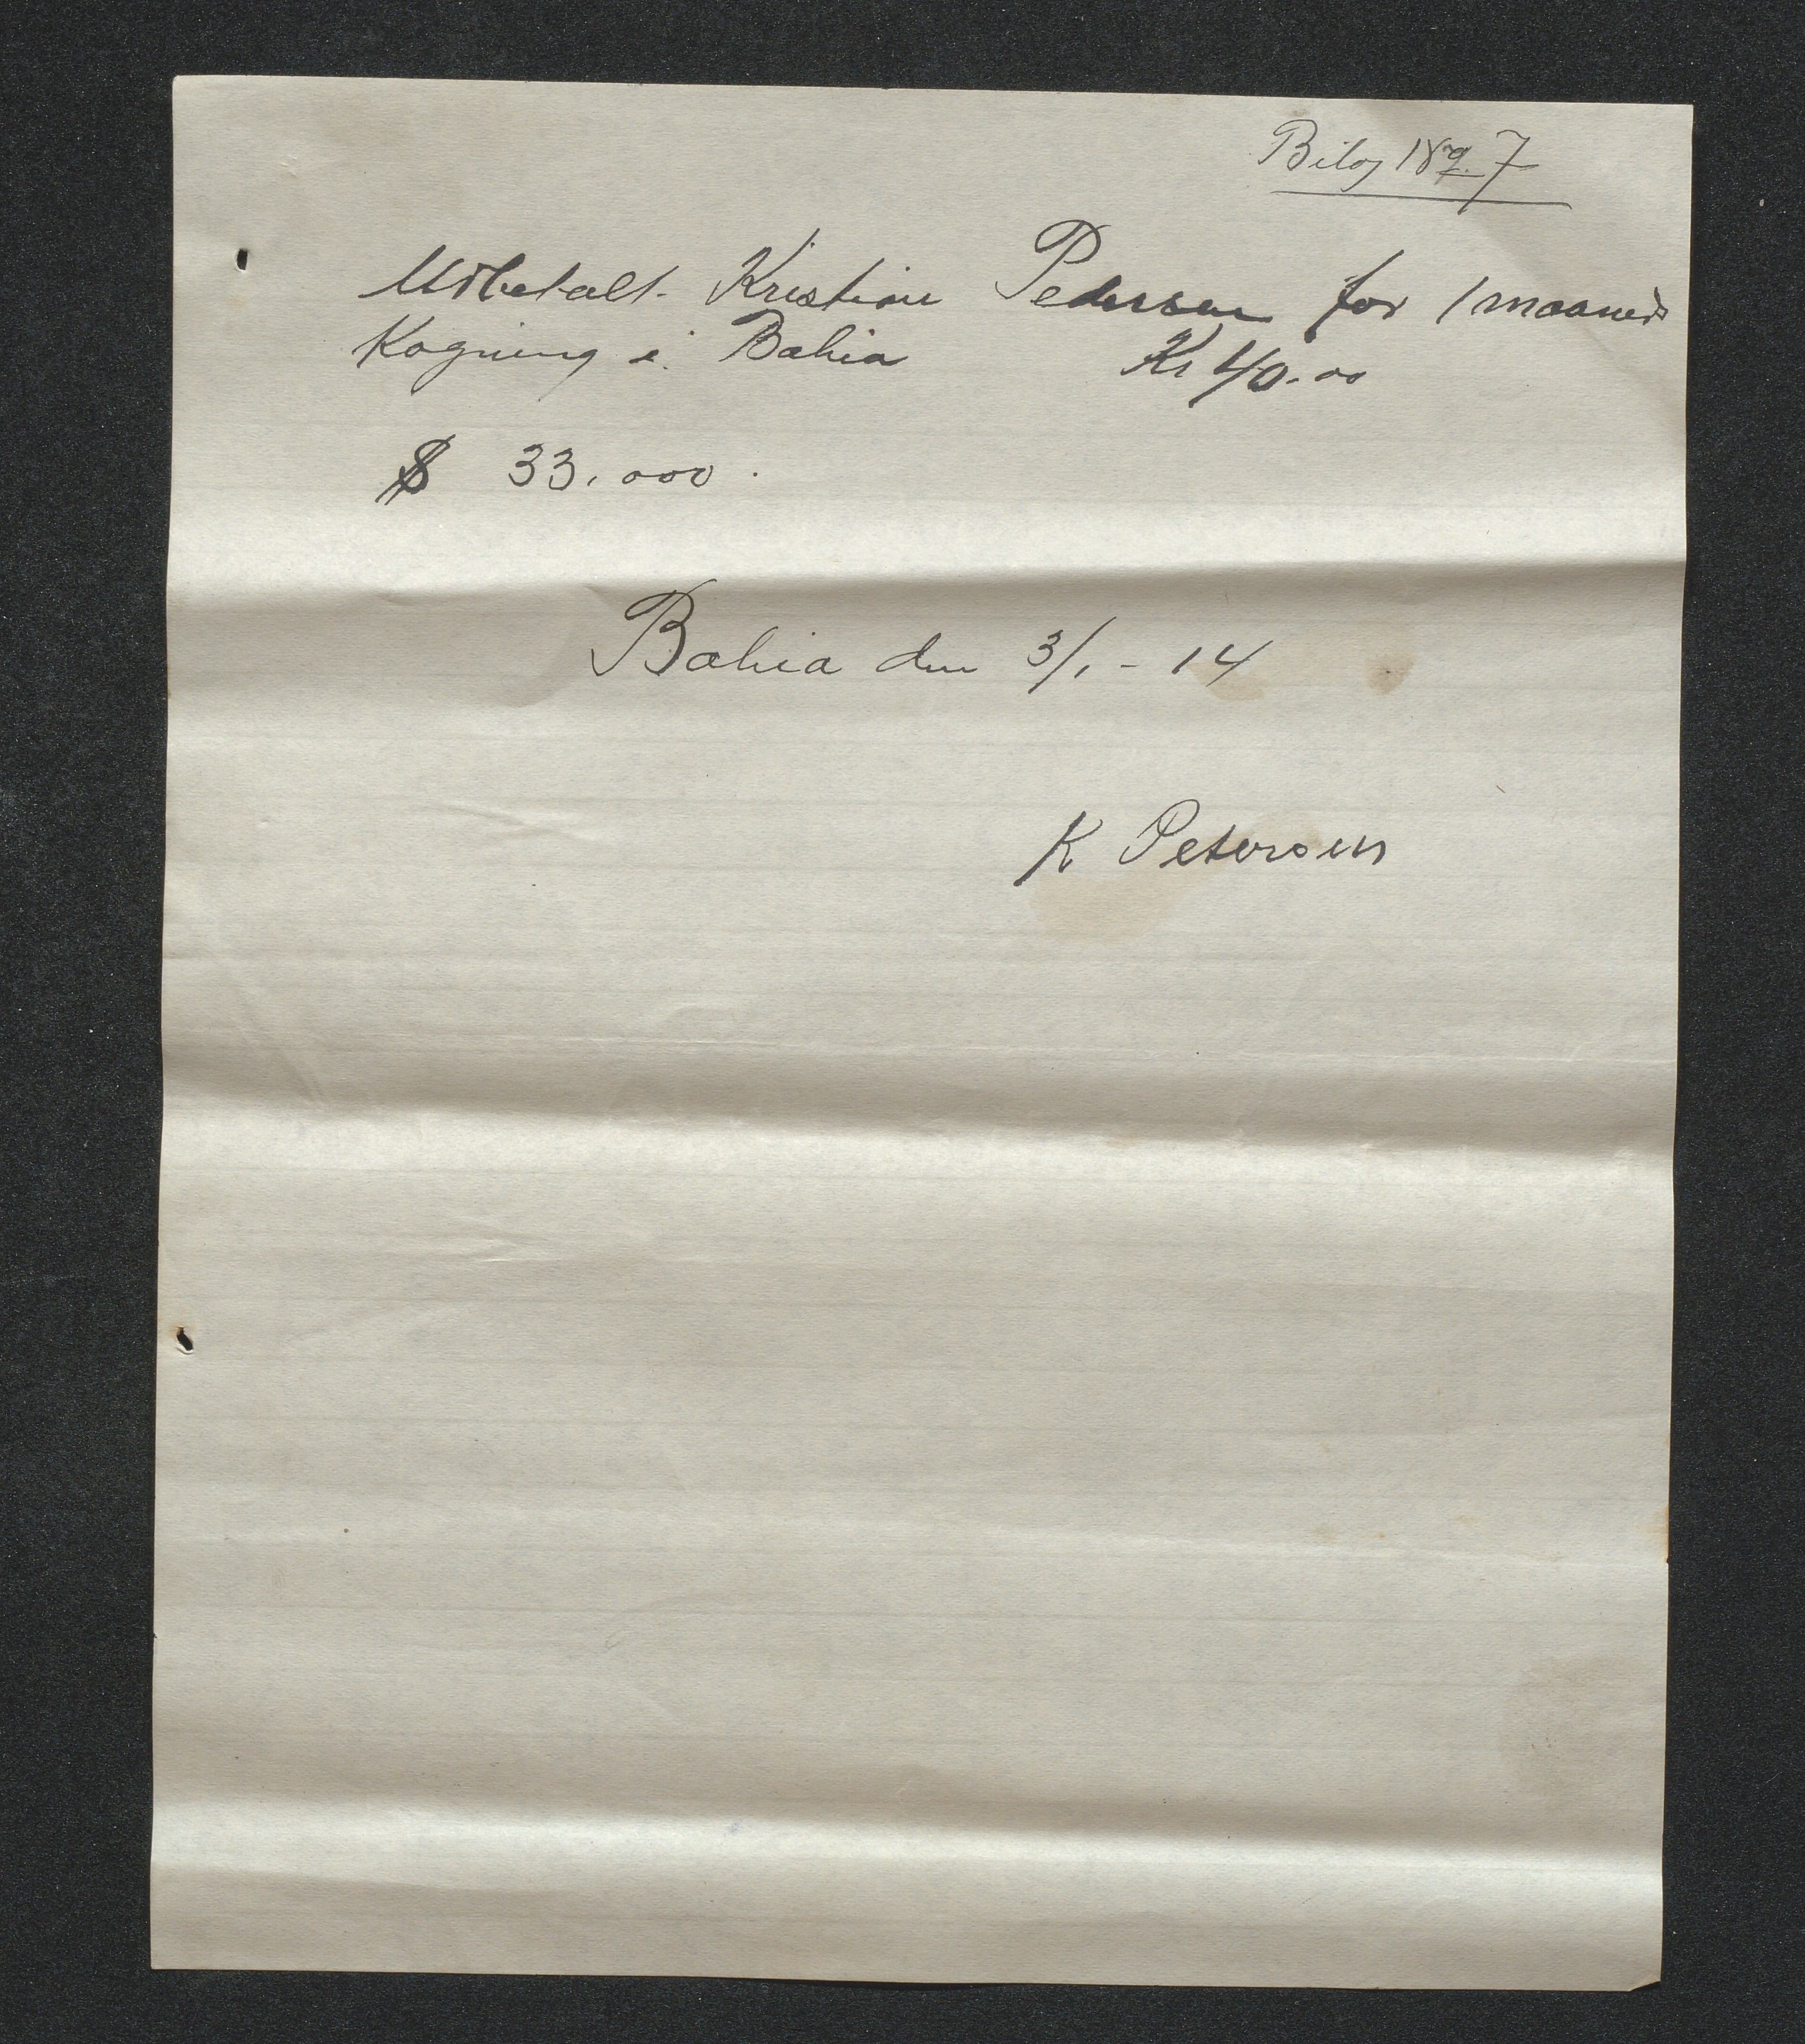 Bilag 7
Udbetalt Kristian Pedersen for 1 maaneds
Kogning i Bahia Kr 40.00
$ 33.000.
Bahia den 3/1 - 14
K Petersen